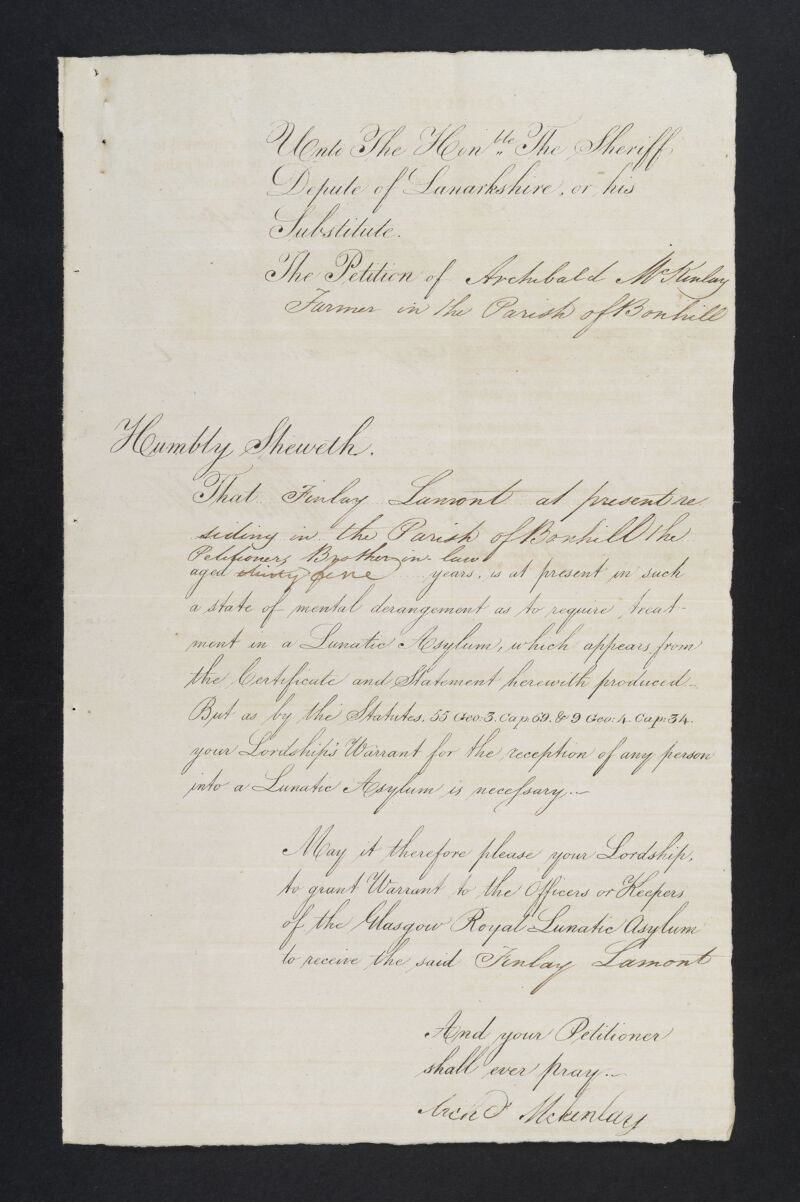 Unto The Honble The Sheriff
Depute of Lanarkshire, or his
Substitute.
The Petition of Archibald McKinlay
Farmer in the Parish of Bonhill
Humbly Sheweth.
That Finlay Lamont at present re
siding in the Parish of Bonhill the
Petitioners Brother in law
aged thirty five years, is at present in such
a state of mental derangement as to require treat-
ment in a Lunatic Asylum, which appears from
the Certificate and Statement herewith produced-
But as by the Statutes, 55 Geo: 3. Cap: 69. & 9 Geo: 4. Cap: 34.
your Lordship's Warrant for the reception of any person
into a Lunatic Asylum is necessary.-
May it therefore please your Lordship,
to grant Warrant to the Officers or Keepers
of the Glasgow Royal Lunatic Asylum
to receive the said Finlay Lamont
And your Petitioner
shall ever pray.-
Arch'd McKinlay